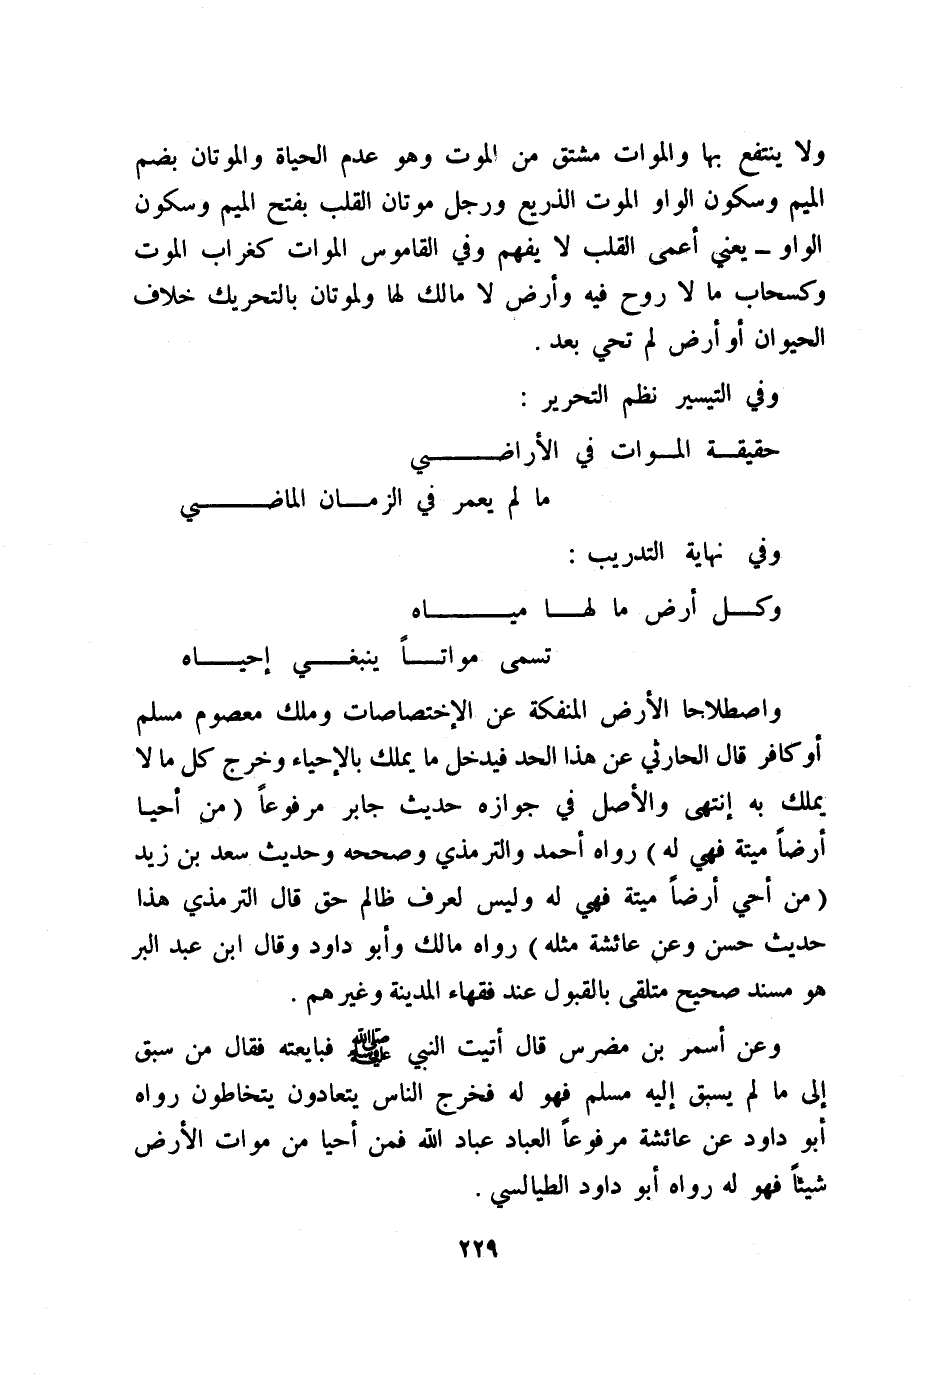 ولا ينتفع بها والموات مشتق من الموت وهو عدم الحياة والموتان بضم
الميم وسكون الواو الموت الذريع ورجل موتان القلب بفتح الميم وسكون
الواو – يعني أعمى القلب لا يفهم وفي القاموس الموات كغراب الموت
وكسحاب ما لا روح فيه وأرض لا مالك لها ولموتان بالتحريك خلاف
الحيوان أو أرض لم تحي بعد .
وفي التيسير نظم التحرير :
حقيقـة المـوات في الأراضـــــي
ما لم يعمر في الزمـان الماضـــــي
وفي نهاية التدريب :
وكـل أرض ما لهـا ميـــــاه
تسمى مواتـاً ينبغـي إحيـاه
واصطلاحا الأرض المنفكة عن الإختصاصات وملك معصوم مسلم
أو كافر قال الحارثي عن هذا الحد فيدخل ما يملك بالإحياء وخرج كل ما لا
يملك به إنتهى والأصل في جوازه حديث جابر مرفوعاً ( من أحيا
أرضاً ميتة فهي له ) رواه أحمد والترمذي وصححه وحديث سعد بن زيد
( من أحي أرضاً ميتة فهي له وليس لعرف ظالم حق قال الترمذي هذا
حديث حسن وعن عائشة مثله ) رواه مالك وأبو داود وقال ابن عبد البر
هو مسند صحيح متلقى بالقبول عند فقهاء المدينة وغيرهم .
وعن أسمر بن مضرس قال أتيت النبي ﷺ فبايعته فقال من سبق
إلى ما لم يسبق إليه مسلم فهو له فخرج الناس يتعادون يتخاطون رواه
أبو داود عن عائشة مرفوعاً العباد عباد الله فمن أحيا من موات الأرض
شيئاً فهو له رواه أبو داود الطيالسي .
٢٢٩